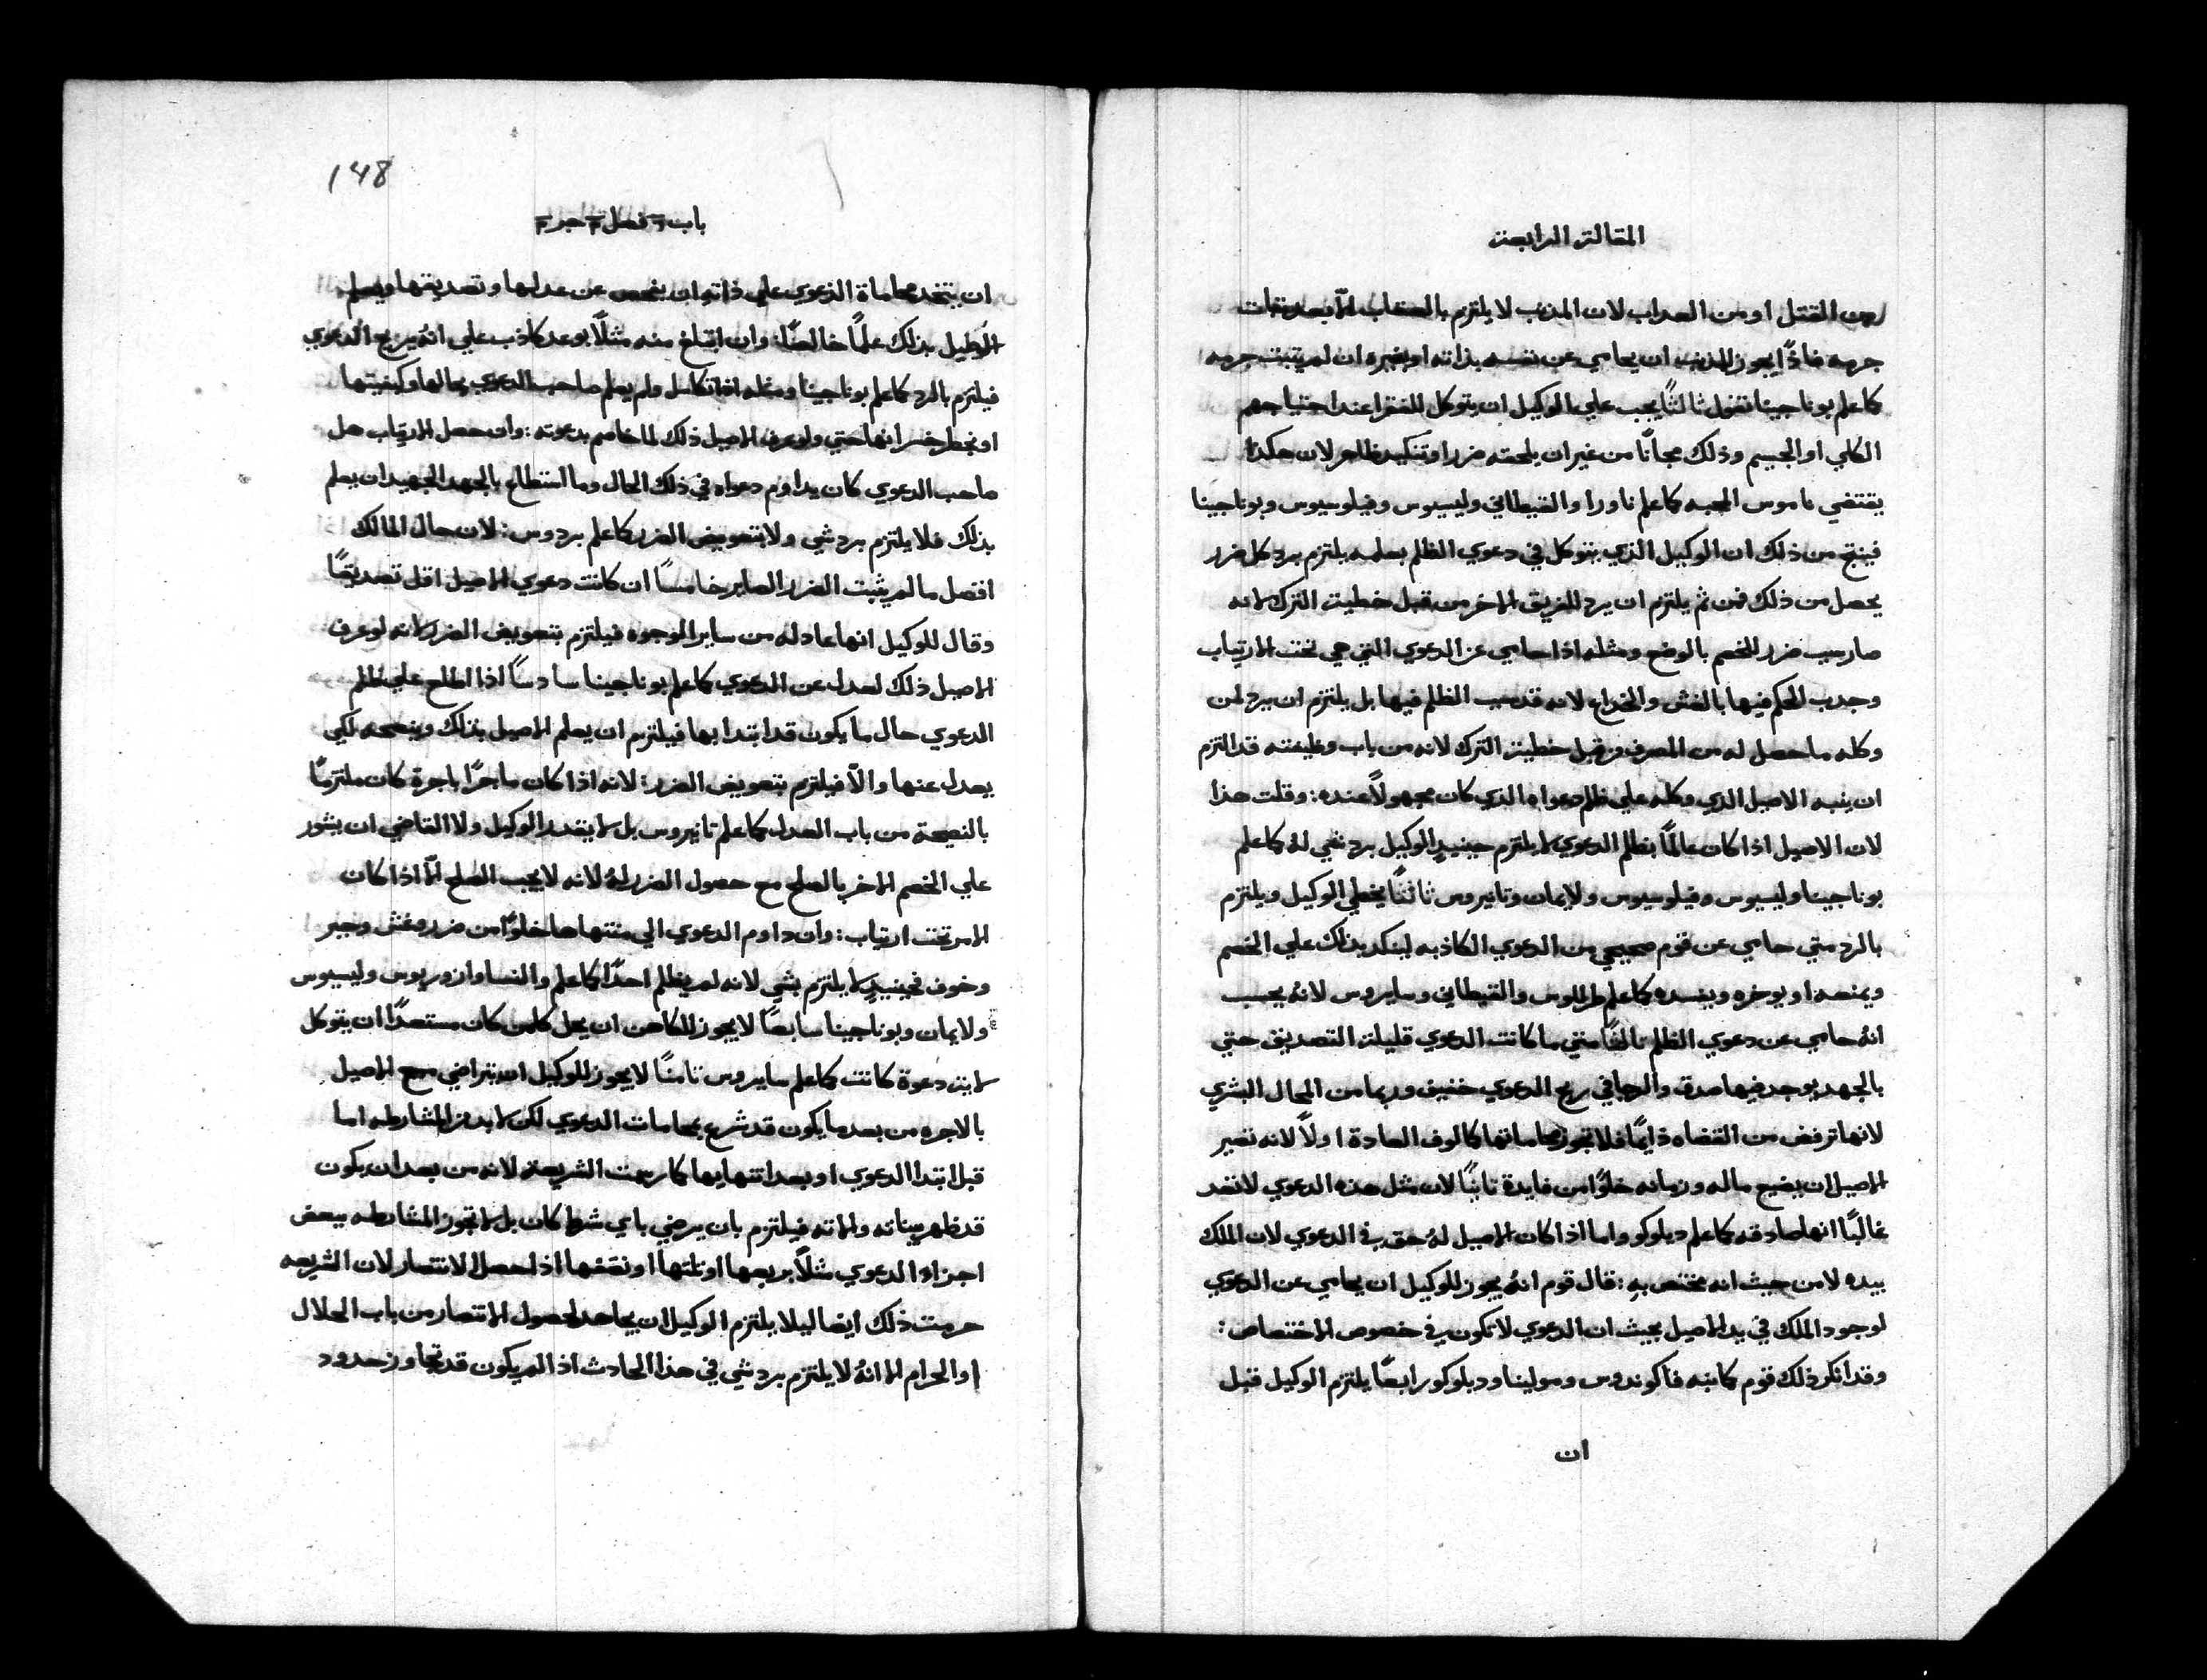 المقالة الرابعة
من القتل او من العداب لان المذنب لا يلتزم بالعقاب الّا بعد ثبات
جرمه فاذًا يجوز للمذنب ان يحامي عن نفسه بذاته او بغيره ان لم يتبت جرمه
كما علم بوناجينا نقول ثالثًا يجب علي الوكيل ان يتوكل للفقرا عند احتياجهم
الكلي او الجسيم وذلك مجانًا من غير ان يلحقه ضرر او تنكيد ظاهر لان هكذا
يقتضي ناموس المحبه كما علم ناورا والقيطاني وليسيوس وفيلوسيوس وبوناجينا
فينتج من ذلك ان الوكيل الذي يتوكل في دعوي الظلم بعلمه يلتزم برد كل ضرر
يحصل من ذلك فمن ثم يلتزم ان يرد للفريق الاخر من قبل خطية الترك لانه
صار سبب ضرر للخصم بالوضع ومثله اذا حامي عن الدعوي التي هي تحت الارتياب
وجدب الحكم فيها بالغش والخداع لانه قد سبب الظلم فيها بل يلتزم ان يرد لمن
وكله ما حصل له من المصرف من قبل خطية الترك لانه من باب وظيفته قد التزم
ان ينبه الاصيل الذي وكله علي ظلم دعواه الذي كان مجهولاً عنده : وقلت هذا
لان الاصيل اذا كان عالمًا بظلم الدعوي لا يلتزم حينيدٍ الوكيل برد شي لهُ كما علم
بوناجينا وليسيوس وفيلوسيوس ولايمان وتانيروس ثالثًا يخطي الوكيل ويلتزم
بالرد متي حامي عن قوم صحيحي من الدعوي الكاذبه لينكد بذلك علي الخصم
ويمنعه او يوخره ويفسده كما علم طرللوس والقيطاني وسايروس لانهُ يحسب
انهُ حامي عن دعوي الظلم ثالثًا متي ما كانت الدعوي قليلة التصديق حتي
بالجهد يوجد فيها صدق والرجا في ربح الدعوي خفيف وربما من المحال البشري
لانها ترفض من القضاه دايمًا فلا تجوز محاماتها كمالوف العادة اولاً لانه تصير
الاصيل ان يضيع ماله وزمانه خلوًا من فايدة ثانيًا لان مثل هذه الدعوي لا تعد
غالبًا انها صادقه كما علم ديلوكو واما اذا كان الاصيل لهُ حق في الدعوي لان الملك
بيده لا من حيث انه مختص بهِ : قال قوم انهُ يجوز للوكيل ان يحامي عن الدعوي
لوجود الملك في يد الاصيل بحيث ان الدعوي لا تكون في خصوص الاختصاص :
وقد انكر ذلك قوم كما نبه فاكوندوس ومولينا وديلوكو رابعًا يلتزم الوكيل قبل
ان
148
باب ٦ فصل ٣ جز ٣
ان يتخد محاماة الدعوي علي ذاته ان يفحص عن عدلها وتصديقها ويعلم
الاصيل بذلك علمًا خالصًا : وان ابتلغ منه مثلاً بوعد كاذب علي انهُ يربح الدعوي
فيلتزم بالرد كما علم بوناجينا ومثله اذا تكاسل ولم يعلم صاحب الدعوي بحالها وكيفيتها
او بخطر خسرانها حتي ولو عرف الاصيل ذلك لما خاصم بدعوته : وان حصل الارتياب هل
صاحب الدعوي كان يداوم دعواه في ذلك الحال وما استطاع بالجهد الجهيد ان يعلم
بذلك فلا يلتزم برد شي ولا بتعويض الضرر كما علم بردوس : لان حال المالك
افضل ما لم يثبت الضرر الصاير خامسًا ان كانت دعوي الاصيل اقل تصديقًا
وقال للوكيل انها عادله من ساير الوجوه فيلتزم بتعويض الضرر لانه لو عرف
الاصيل ذلك لعدل عن الدعوي كما علم بوناجينا سادسًا اذا اطلع علي ظلم
الدعوي حال ما يكون قد ابتدا بها فيلتزم ان يعلم الاصيل بذلك وينصحه لكي
يعدل عنها والّا فيلتزم بتعويض الضرر : لانه اذا كان ماجرًا باجرة كان ملتزمًا
بالنصيحة من باب العدل كما علم تانيروس بل لا يقدر الوكيل ولا القاضي ان يشور
علي الخصم الاخر بالصلح مع حصول الضرر لهُ لانه لا يجب الصلح الّا اذا كان
الامر تحت ارتياب : وان داوم الدعوي الي منتهاها خلوًا من ضرر وغش وجبر
وخوف فحينيدٍ لا يلتزم بشي لانه لم يظلم احدًا كما علم والنسا وازوريوس وليسيوس
ولايمان وبوناجينا سابعًا لا يجوز للكاهن ان يحل كلمن كان مستعدًا ان يتوكل
لاية دعوة كانت كما علم سايروس ثامنًا لا يجوز للوكيل ان يتراضي مع الاصيل
بالاجره من بعد ما يكون قد شرع بمحامات الدعوي لكن لا بد من المشارطه اما
قبل ابتدا الدعوي او بعد انتهايها كما رسمت الشريعة لانه من بعد ان يكون
قد ظهر بيناته والاته فيلتزم بان يرضي باي شرط كان بل لا تجوز المشارطه ببعض
اجزاء الدعوي مثلاً بربعها او ثلثها او نصفها اذا حصل الانتصار لان الشريعه
حرمت ذلك ايضا ليلا يلتزم الوكيل ان يجاهد لحصول الانتصار من باب الحلال
او الحرام الا انهُ لا يلتزم برد شي في هذا الحادث اذا لم يكون قد تجاوز حدود